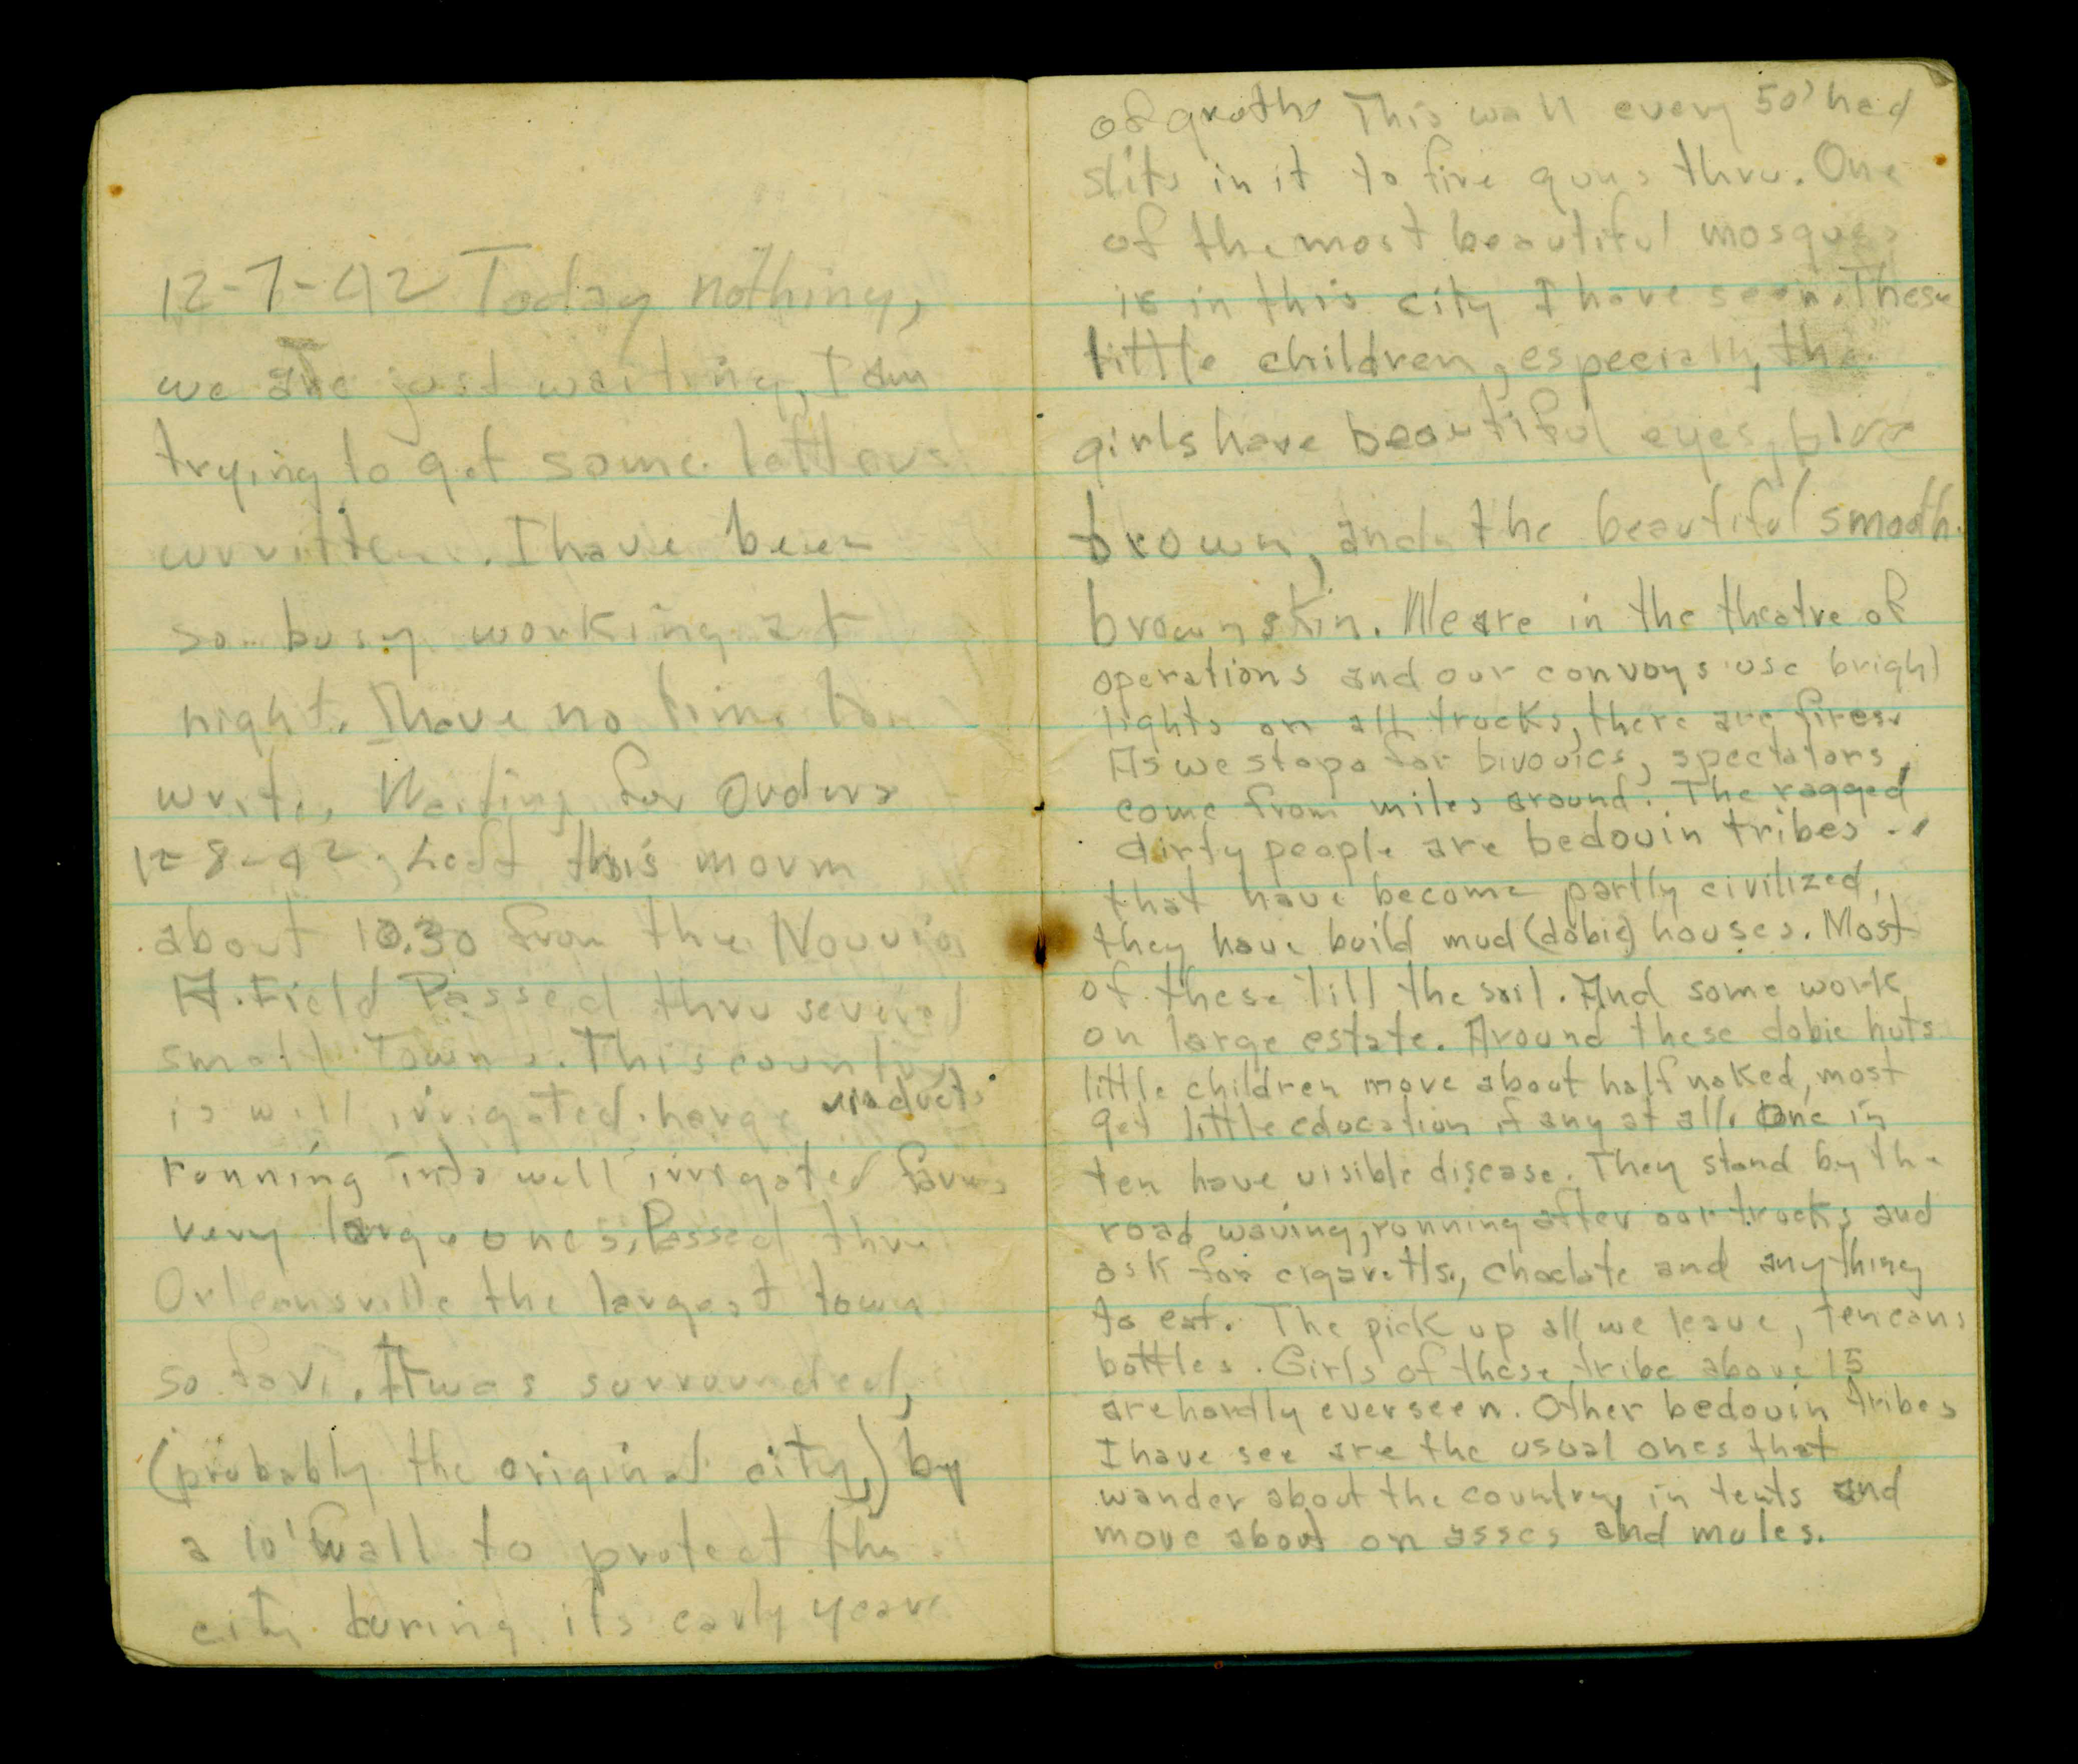 12-7-42 Today nothing,
we are just waiting, I am
trying to get some letters
written. I have been
so busy working at
night. I have no time to
write. Waiting for Orders
12-8-42, Left this morn
about 10.30 from the Nouvia
A. Field Passed thru several
small Towns. This country
is well irrigated. Large viaducts
running into well irrigated farms
very large ones. Passed thru
Orleansville the largest town
so far. It was surrounded,
(probably the original city,) by
a 10' wall to protect the
city during its early years
of groth This wall every 50' had
slits in it to fire guns thru. One
of the most beautiful mosques
is in this city I have seen. These
little children, especially, the
girls have beautiful eyes, blue
brown, and the beautiful smooth
brown skin. We are in the theatre of
operations and our convoys use bright
lights on all trucks, there are fires.
As we stops for bivouics, spectators,
come from miles around. The ragged
dirty people are bedouin tribes
that have become partly civilized,
they have build mud (dobie) houses. Most
of these till the soil. And some work
on large estate. Around these dobie huts
little children move about half naked, most
get little education if any at all. One in
ten have visible disease. They stand by the
road waving, running after our trucks and
ask for cigaretts, choclate and anything
to eat. The pick up all we leave, ten cans
bottles. Girls of these tribe above 15
are hardly ever seen. Other bedouin tribes
I have see are the usual ones that
wander about the country in tents and
move about on asses and mules.